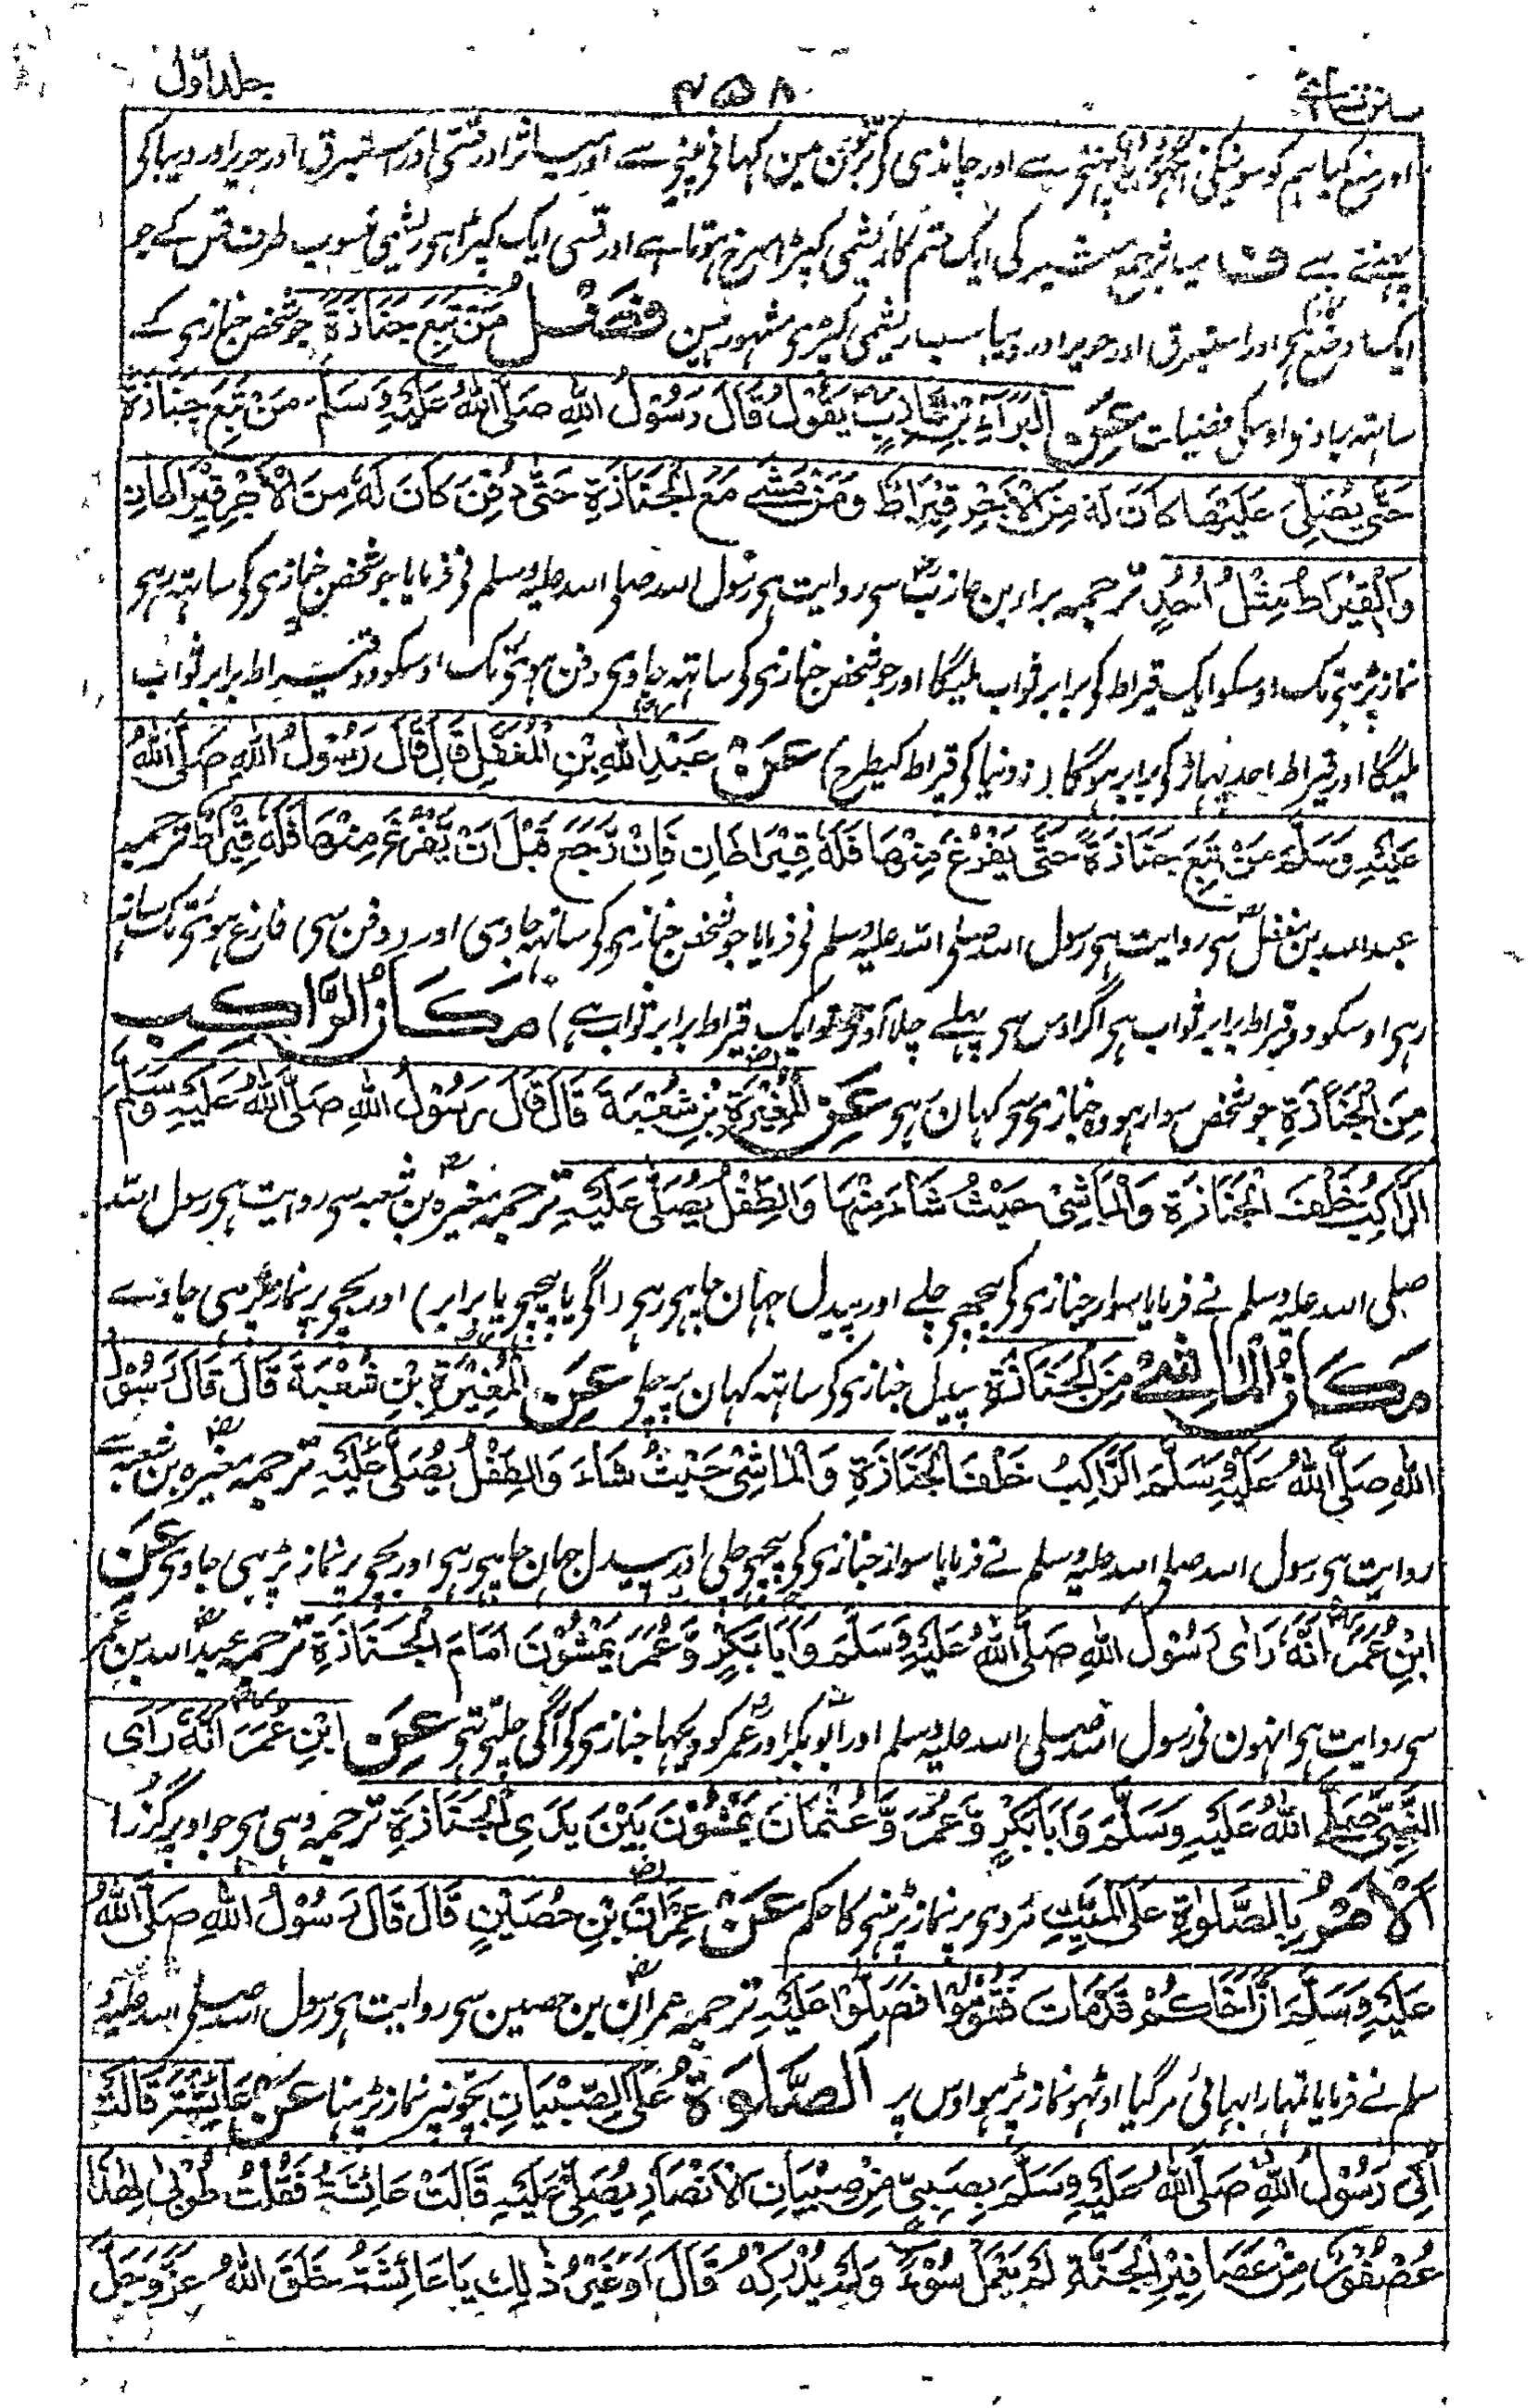 سنن نسائی ۴۵۸ جلد اول
اور منع کیا ہم کو سونیکی انگوٹھیاں پہننے سے اور چاندی کے برتن مین کہانے پینے سے اور میاثر اور قسی اور استبرق اور حریر اور دیبا کی
پہننے سے ف میاثر جمع میثرہ کی ایک قسم کا ریشمی کپڑا سرخ ہوتا ہے اور قسی ایک کپڑا ہے ریشمی منسوب طرف قس کے جو
ایک موضع ہے اور استبرق اور حریر اور دیبا سب ریشمی کپڑے مشہور ہین فَضْلُ مَنْ تَبِعَ جَنَازَةً جو شخص جنازی کے
ساتہہ جاوے اوسکی فضیلت عَنِ الْبَرَاءِ بْنِ عَازِبٍ يَقُوْلُ قَالَ رَسُوْلُ اللهِ صَلَّى اللهُ عَلَيْهِ وَسَلَّمَ مَنْ تَبِعَ جَنَازَةً
حَتَّى يُصَلِّىَ عَلَيْهَا كَانَ لَهُ مِنَ الْاَجْرِ قِيْرَاطٌ وَمَنْ مَشٰى مَعَ الْجَنَازَةِ حَتّٰى تُدْفَنَ كَانَ لَهُ مِنَ الْاَجْرِ قِيْرَاطَانِ
وَالْقِيْرَاطُ مِثْلُ اُحُدٍ ترجمہ براء بن عازب سے روایت ہے رسول اللہ صلی اللہ علیہ وسلم نے فرمایا جو شخص جنازی کی ساتہہ رہی
نماز پڑہنی تک اوسکو ایک قیراط کی برابر ثواب ملیگا اور جو شخص جنازی کی ساتہہ جاوی دفن ہونی تک اوسکو دو قیراط برابر ثواب
ملیگا اور قیراط احد پہاڑ کی برابر ہوگا (نہ دنیا کی قیراط کیطرح) عَنْ عَبْدِ اللهِ بْنِ الْمُغَفَّلِ قَالَ قَالَ رَسُوْلُ اللهِ صَلَّى اللهُ
عَلَيْهِ وَسَلَّمَ مَنْ تَبِعَ جَنَازَةً حَتّٰى يُفْرَغَ مِنْهَا فَلَهُ قِيْرَاطَانِ فَاِنْ رَجَعَ قَبْلَ اَنْ يُفْرَغَ مِنْهَا فَلَهُ قِيْرَاطٌ ترجمہ
عبداللہ بن مغفل سے روایت ہے رسول اللہ صلی اللہ علیہ وسلم نے فرمایا جو شخص جنازی کی ساتہہ جاوی اور (دفن سے) فارغ ہونی تک ساتہہ
رہی اوسکو دو قیراط برابر ثواب ہے اگر اوس سے پہلے چلا آوے تو ایک قیراط برابر ثواب ہے) مَكَانُ الرَّاكِبِ
مِنَ الْجَنَازَةِ جو شخص سوار ہو وہ جنازی سے کہان رہی عَنِ الْمُغِيْرَةِ بْنِ شُعْبَةَ قَالَ قَالَ رَسُوْلُ اللهِ صَلَّى اللهُ عَلَيْهِ وَسَلَّمَ
اَلرَّاكِبُ خَلْفَ الْجَنَازَةِ وَالْمَاشِىْ حَيْثُ شَاءَ مِنْهَا وَالطِّفْلُ يُصَلّٰى عَلَيْهِ ترجمہ مغیرہ بن شعبہ سے روایت ہے رسول اللہ
صلی اللہ علیہ وسلم نے فرمایا سوار جنازی کی پیچہے چلے اور پیدل جہان چاہے رہے (آگی یا پیچہے یا برابر) اور بچی پر نماز پڑہی جاوے
مَكَانُ الْمَاشِىْ مِنَ الْجَنَازَةِ پیدل جنازی کو ساتہہ کہان پر چلی عَنِ الْمُغِيْرَةِ بْنِ شُعْبَةَ قَالَ قَالَ رَسُوْلُ
اللهِ صَلَّى اللهُ عَلَيْهِ وَسَلَّمَ الرَّاكِبُ خَلْفَ الْجَنَازَةِ وَالْمَاشِىْ حَيْثُ شَاءَ وَالطِّفْلُ يُصَلّٰى عَلَيْهِ ترجمہ مغیرہ بن شعبہ سے
روایت ہے رسول اللہ صلی اللہ علیہ وسلم نے فرمایا سوار جنازی کی پیچہے چلی اور پیدل جہان چاہے رہے اور بچی پر نماز پڑہی جاوی عَنِ
ابْنِ عُمَرَ اَنَّهُ رَاٰى رَسُوْلَ اللهِ صَلَّى اللهُ عَلَيْهِ وَسَلَّمَ وَاَبَا بَكْرٍ وَّعُمَرَ يَمْشُوْنَ اَمَامَ الْجَنَازَةِ ترجمہ عبداللہ بن عمر
سے روایت ہے انہون نے رسول اللہ صلی اللہ علیہ وسلم اور ابو بکر اور عمر کو دیکہا جنازی کو آگی چلتے تہے عَنِ ابْنِ عُمَرَ اَنَّهُ رَاٰى
النَّبِىَّ صَلَّى اللهُ عَلَيْهِ وَسَلَّمَ وَاَبَا بَكْرٍ وَّعُمَرَ وَعُثْمَانَ يَمْشُوْنَ بَيْنَ يَدَىِ الْجَنَازَةِ ترجمہ وہی ہے جو اوپر گزرا
اَلْاَمْرُ بِالصَّلٰوةِ عَلَى الْمَيِّتِ مردی پر نماز پڑہنے کا حکم عَنْ عِمْرَانَ بْنِ حُصَيْنٍ قَالَ قَالَ رَسُوْلُ اللهِ صَلَّى اللهُ
عَلَيْهِ وَسَلَّمَ اِنَّ اَخَاكُمْ قَدْ مَاتَ فَقُوْمُوْا فَصَلُّوْا عَلَيْهِ ترجمہ عمران بن حصین سے روایت ہے رسول اللہ صلی اللہ علیہ و
سلم نے فرمایا تمہارا بہائی مرگیا اوٹہو نماز پڑہو اوس پر اَلصَّلٰوةُ عَلَى الصِّبْيَانِ بچونپر نماز پڑہنا عَنْ عَائِشَةَ قَالَتْ
اُتِىَ رَسُوْلُ اللهِ صَلَّى اللهُ عَلَيْهِ وَسَلَّمَ بِصَبِىٍّ مِّنْ صِبْيَانِ الْاَنْصَارِ يُصَلِّىْ عَلَيْهِ قَالَتْ عَائِشَةُ فَقُلْتُ طُوْبٰى لِهٰذَا
عُصْفُوْرٌ مِّنْ عَصَافِيْرِ الْجَنَّةِ لَمْ يَعْمَلْ سُوْءً وَلَمْ يُدْرِكْهُ قَالَ اَوَ غَيْرُ ذٰلِكَ يَا عَائِشَةُ خَلَقَ اللهُ عَزَّ وَجَلَّ